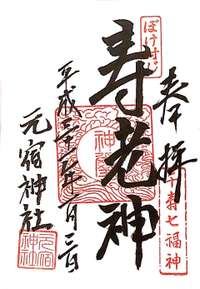 奉拝
千寿七福神
ぼけ封じ
寿老神
平成二十五年一月三日
元宿神社
元宿
神社